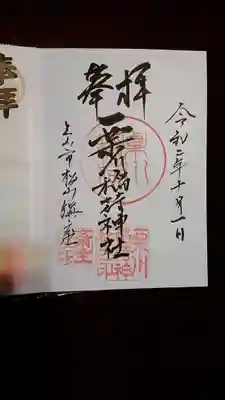 令和二年十月一日
奉拝
栗川稲荷神社
上山市松山鎮座
奉拝